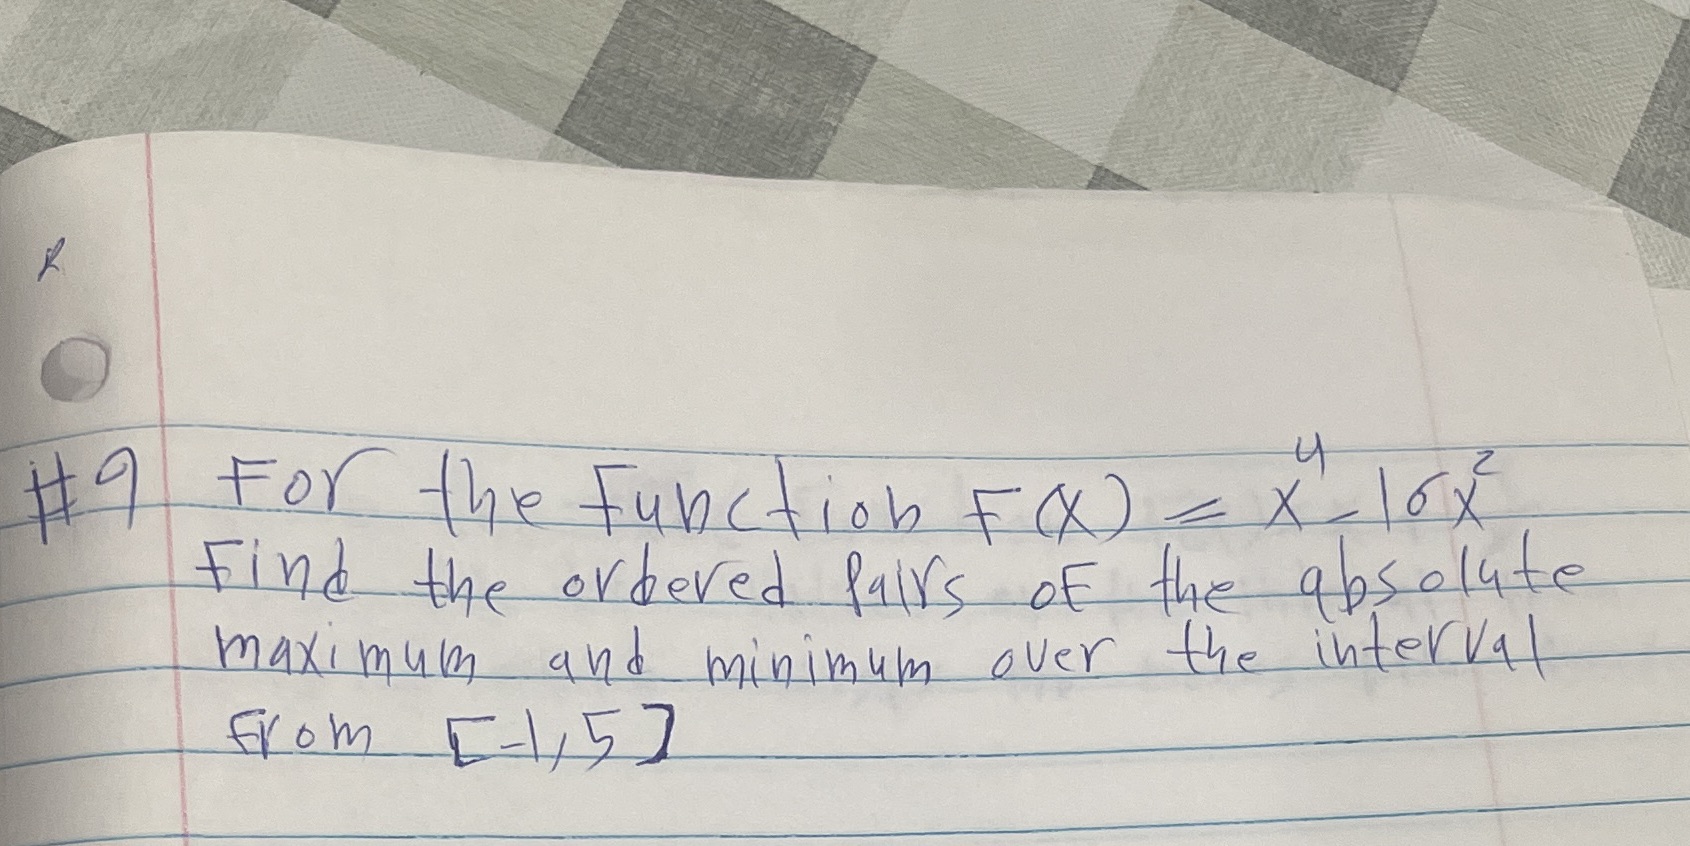 #9 For the function F(x) = x⁴ - 16x²
Find the ordered pairs of the absolute
maximum and minimum over the interval
from [-1,5]